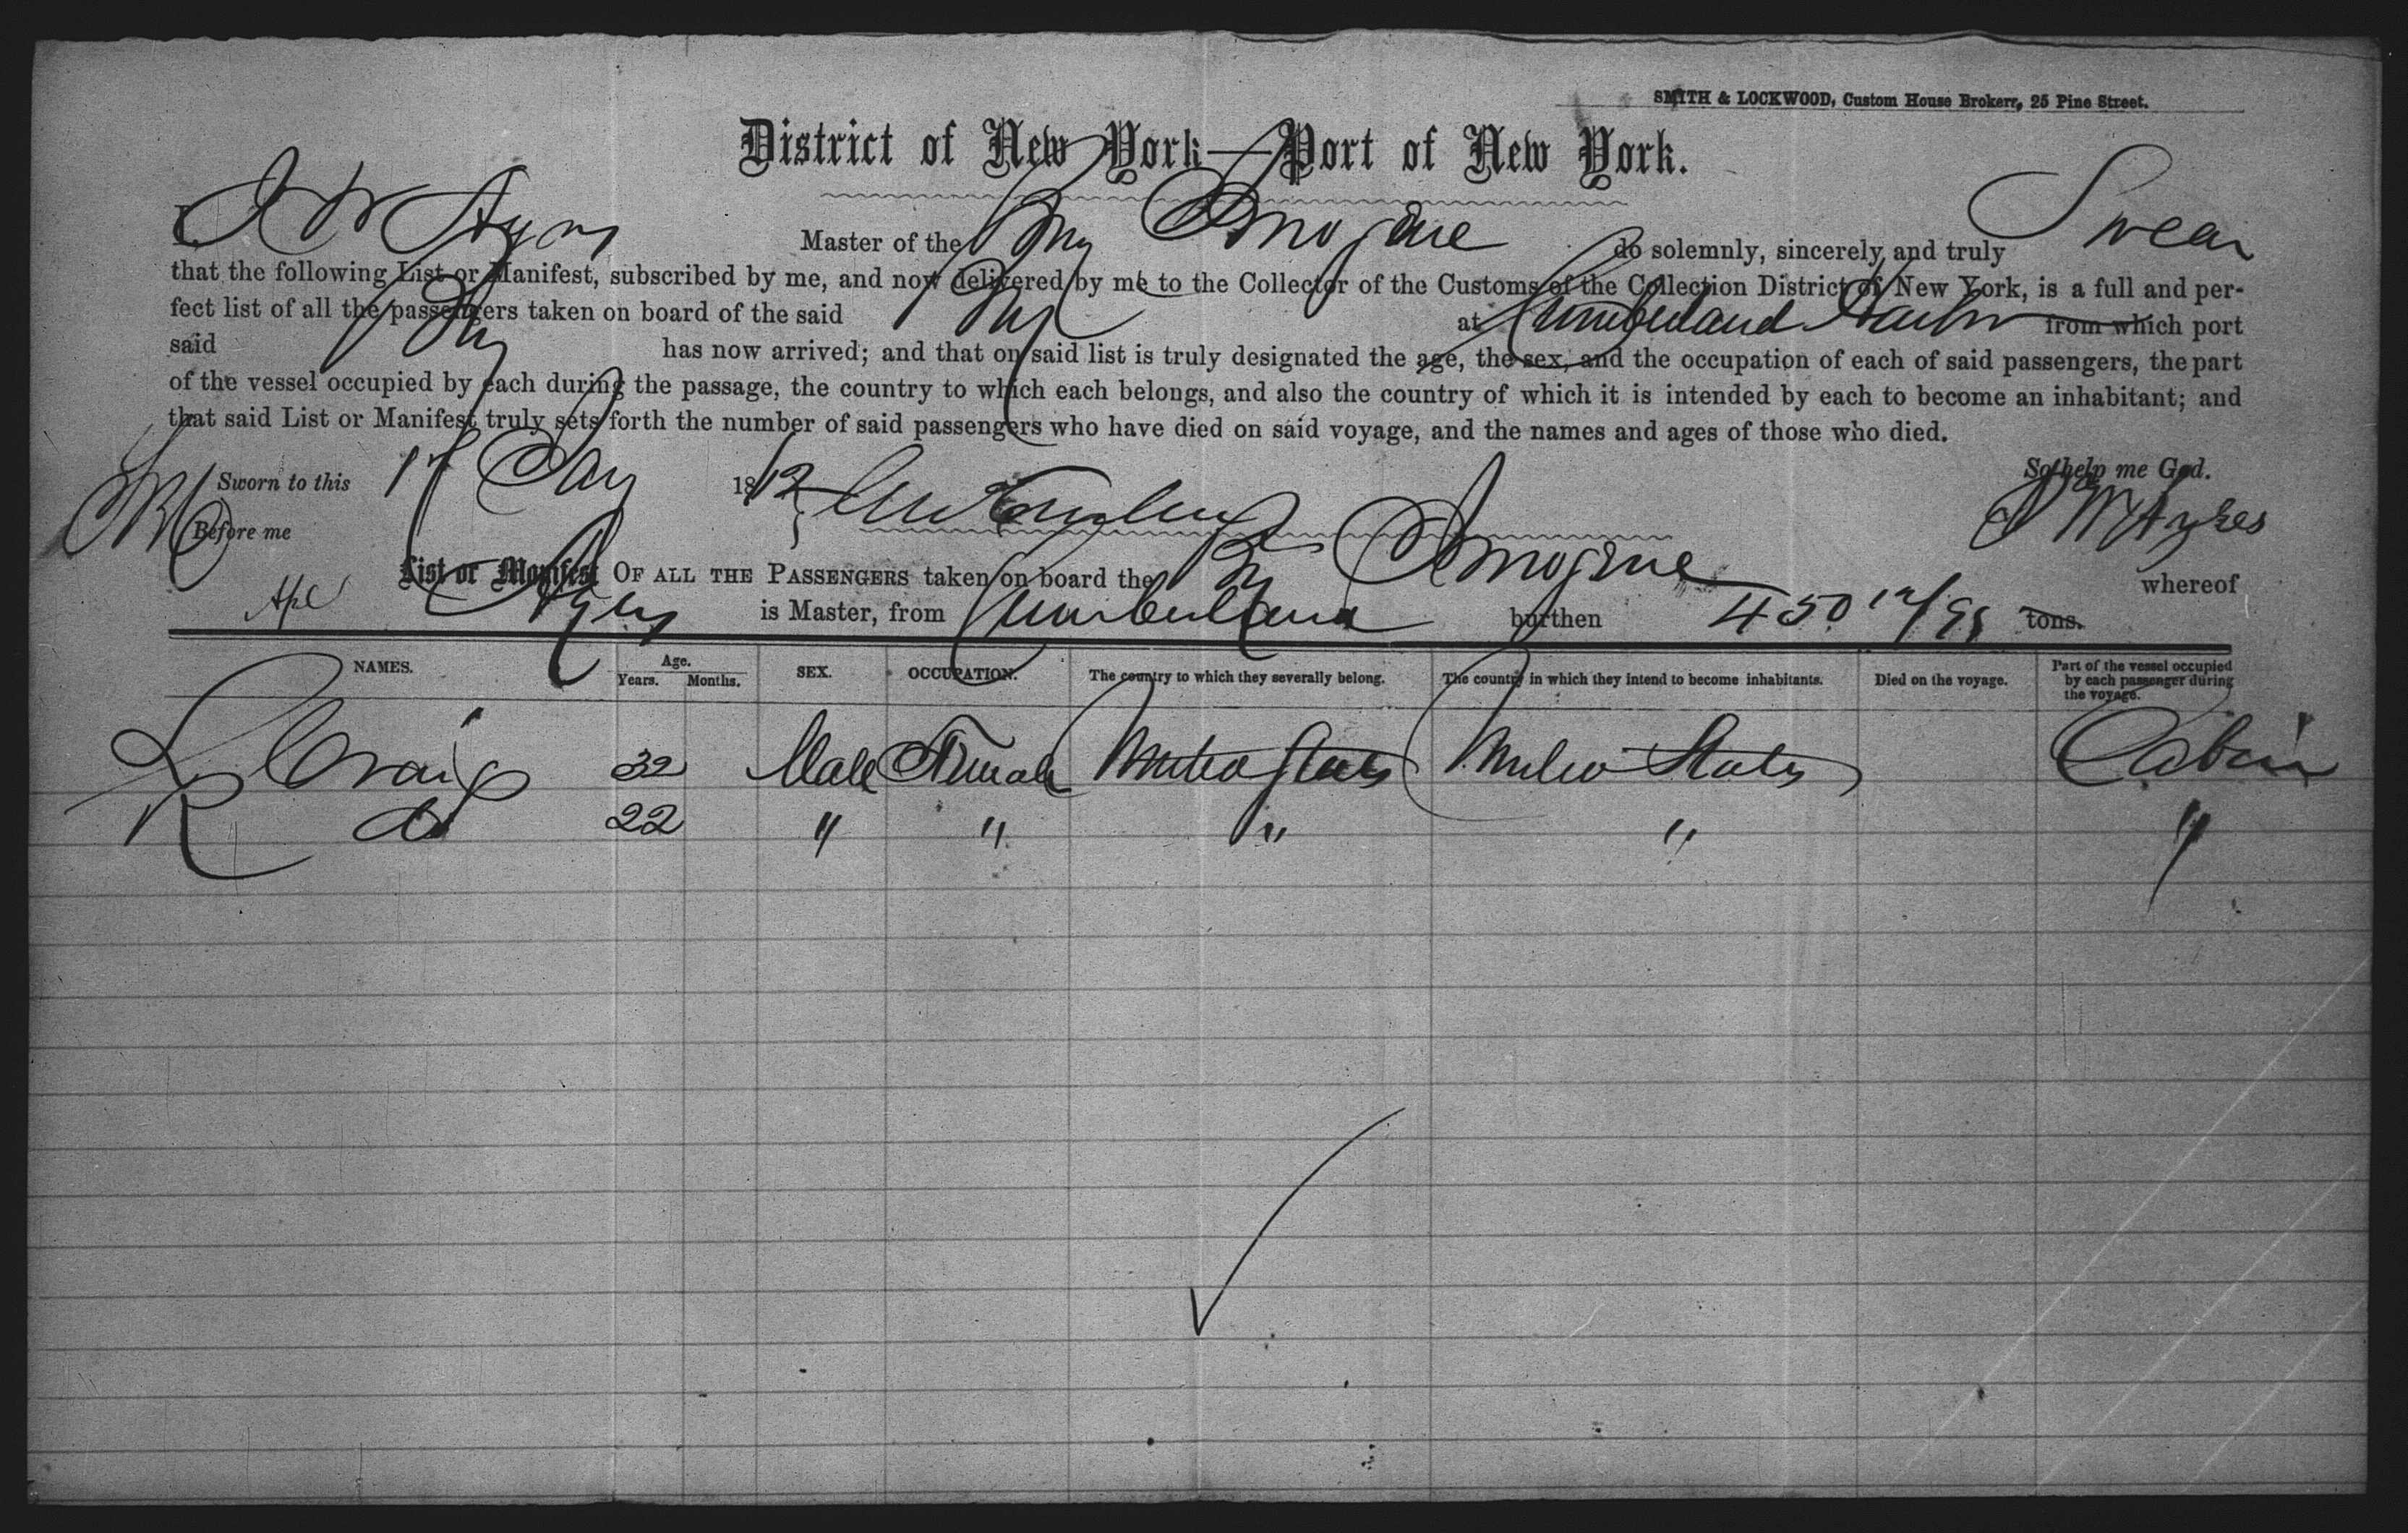 SMITH & LOCKWOOD, Custom House Brokers, 25 Pine Street.
District of New York—Port of New York.
I, Master of the Imogene do solemnly, sincerely and truly Swear
that the following List or Manifest, subscribed by me, and now delivered by me to the Collector of the Customs of the Collection District of New York, is a full and per-
fect list of all the passengers taken on board of the said at Cumberland Harbor from which port
said has now arrived; and that on said list is truly designated the age, the sex, and the occupation of each of said passengers, the part
of the vessel occupied by each during the passage, the country to which each belongs, and also the country of which it is intended by each to become an inhabitant; and
that said List or Manifest truly sets forth the number of said passengers who have died on said voyage, and the names and ages of those who died.
So help me God.
Sworn to this 18
Before me
List or Manifest OF ALL THE PASSENGERS taken on board the Imogene whereof
is Master, from Cumberland burthen 450 tons.
NAMES. Age. Years. Months. SEX. OCCUPATION. The country to which they severally belong. The country in which they intend to become inhabitants. Died on the voyage. Part of the vessel occupied by each passenger during the voyage.
Craig 32 Male United States United States Cabin
do 22 " " " " "